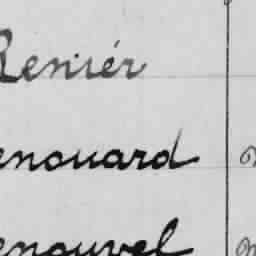 Reniér
enouard
enouvel